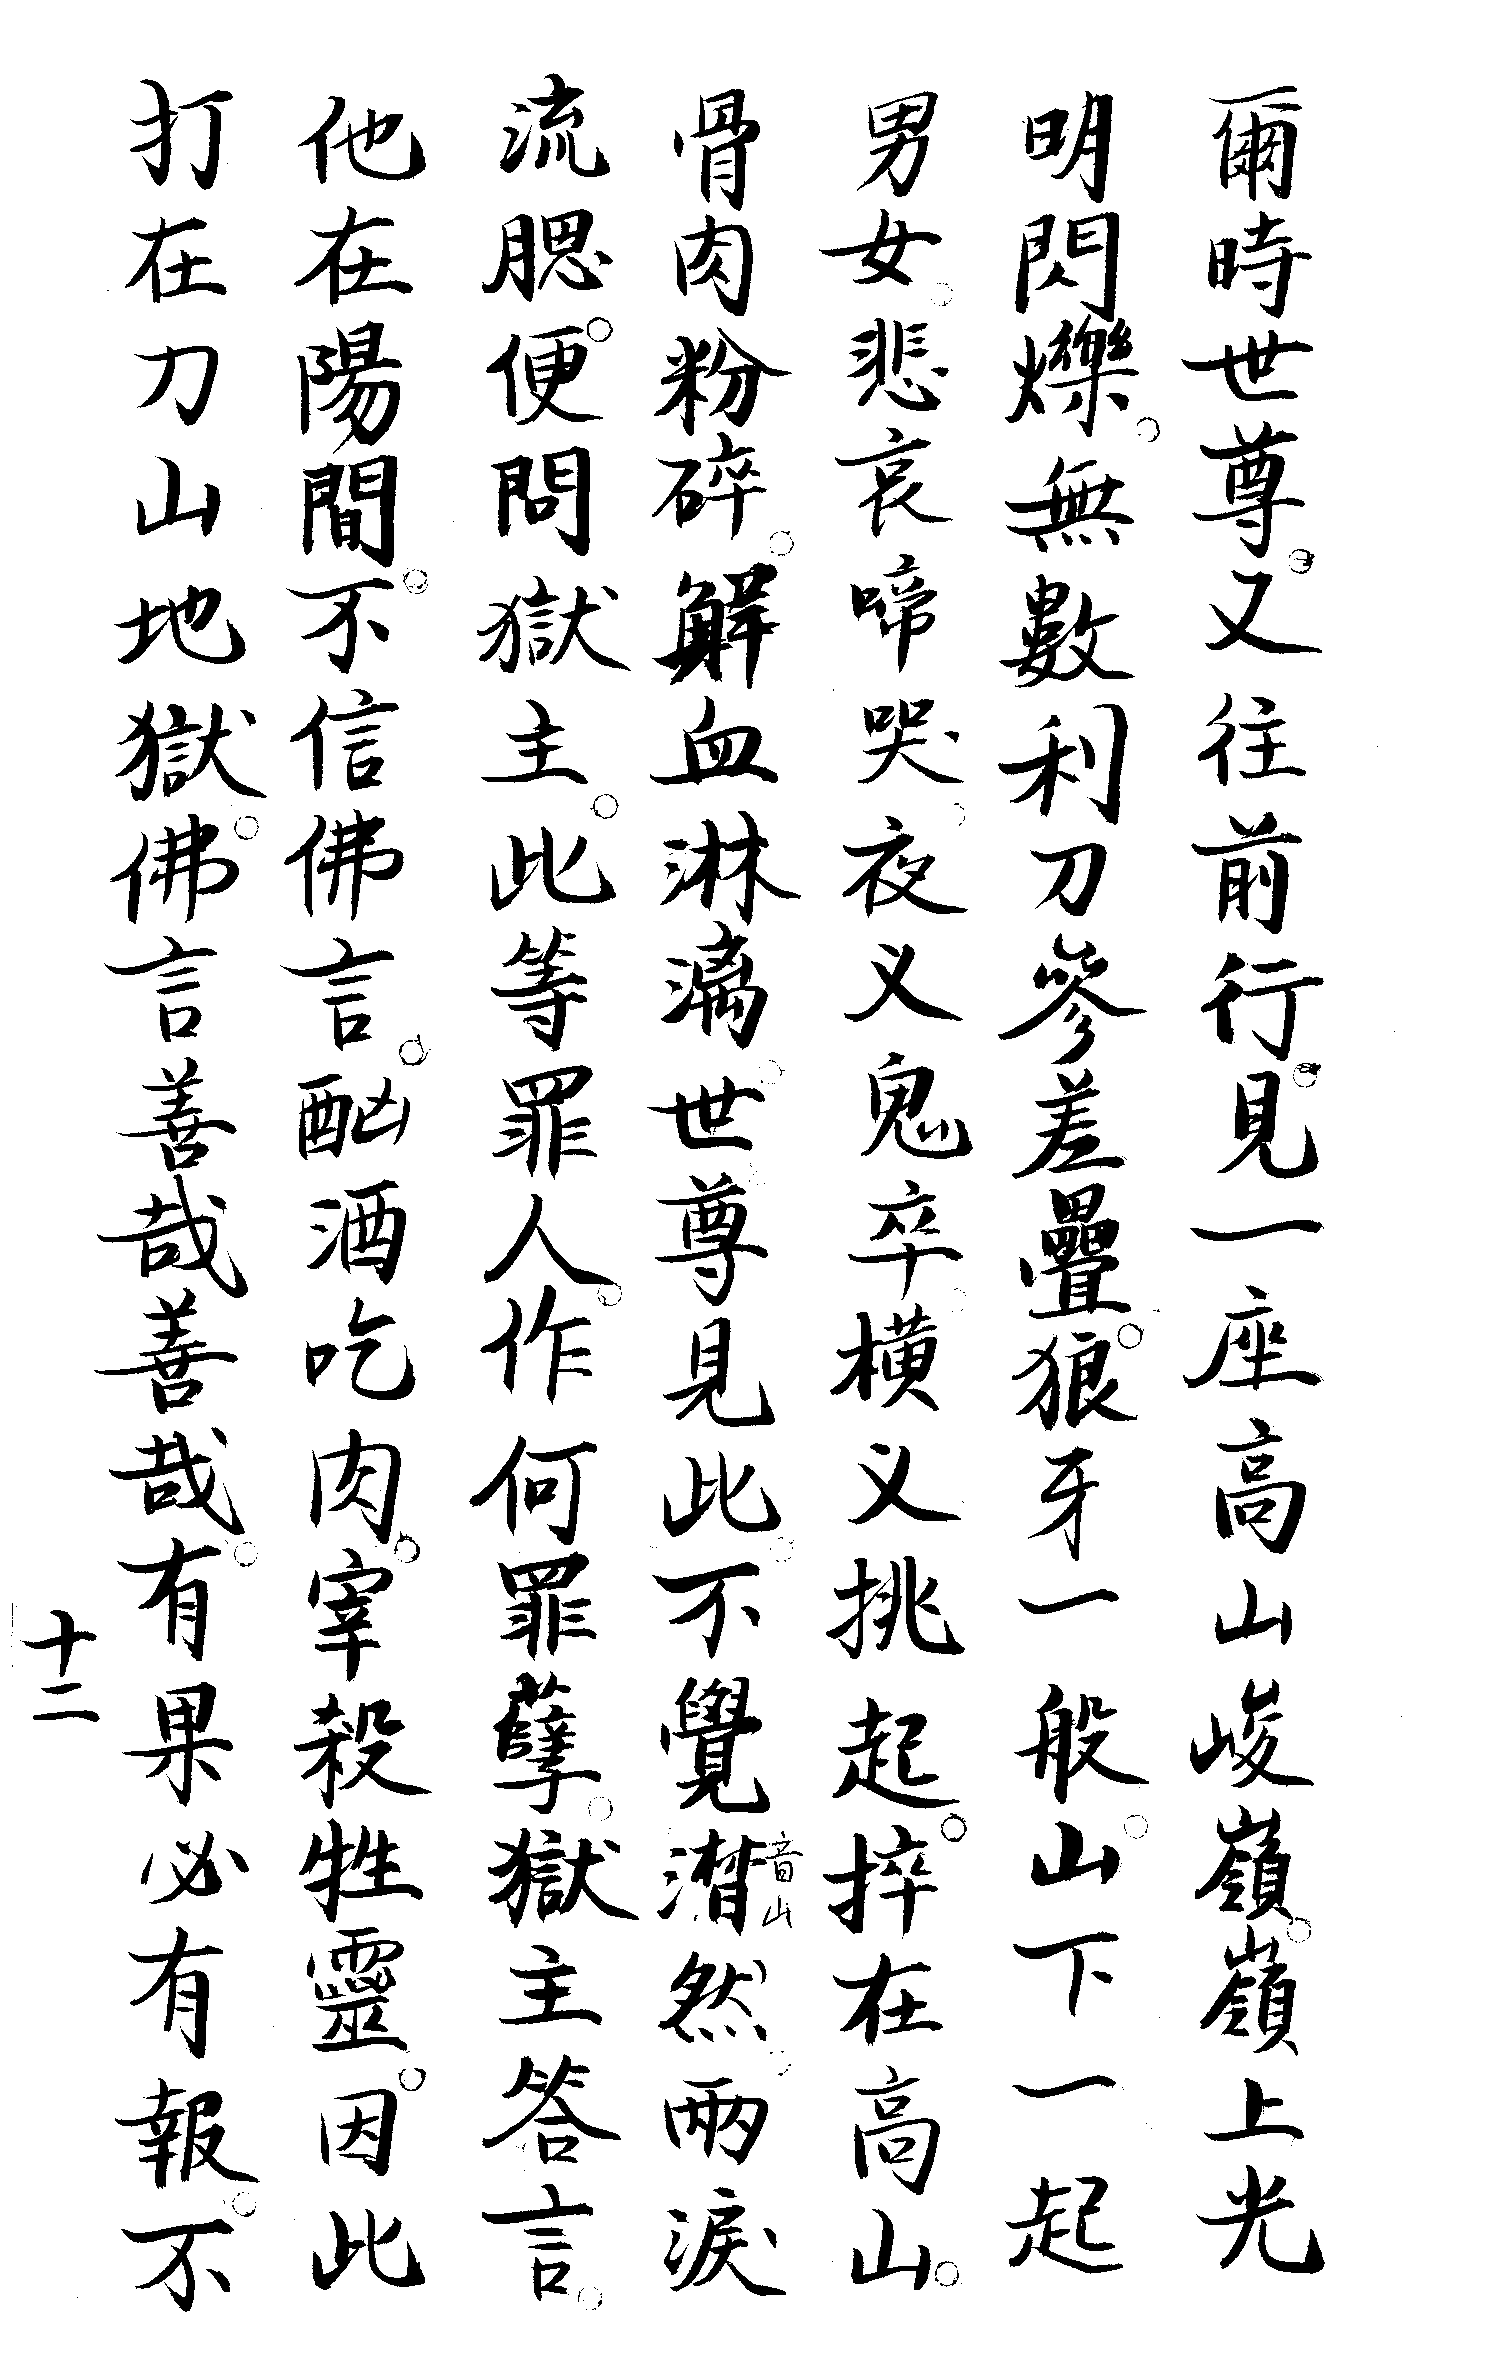 爾時世尊。又往前行。見一座高山峻嶺。嶺上光
明閃爍。無數利刀參差疊。狼牙一般。山下一起
男女。悲哀啼哭。夜义鬼卒。橫义挑起。摔在高山。
骨肉粉碎。鮮血淋漓。世尊見此。不覺潸音山然。兩淚
流腮。便問獄主。此等罪人。作何罪孽。獄主答言。
他在陽間。不信佛言。酗酒吃肉。宰殺牲靈。因此
打在刀山地獄。佛言善哉善哉。有果必有報。不
十二